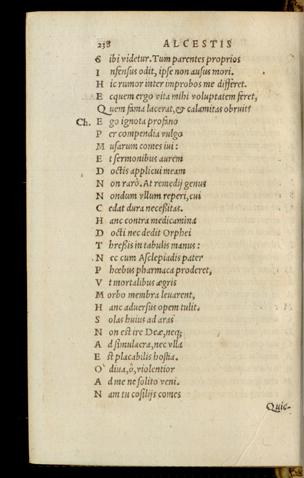 238 ALCESTIS
S ibi videtur. Tum parentes proprios
I nfensus odit, ipse non ausus mori.
H ic rumor inter improbos me differet.
E cquem ergo vita mihi voluptatem feret,
Quem fama lacerat, & calamitas obruit?
Ch. E go ignota profino
P er compendia vulgo
M usarum comes iui:
E t sermonibus aurem
D octis applicui meam
N on rarò. At remedij genus
N ondum vllum reperi, cui
C edat dura necessitas.
H anc contra medicamina
D octi nec dedit Orphei
T hressis in tabulis manus:
N ec cum Asclepiadis pater
P hœbus pharmaca proderet,
V t mortalibus ægris
M orbo membra leuarent,
H anc aduersus opem tulit.
S olas huius ad aras
N on est ire Deæ, neq;
A d simulacra, nec vlla
E st placabilis hostia.
O' diua, ô, violentior
A d me ne solito veni.
N am tu cōsilijs comes
Quic-